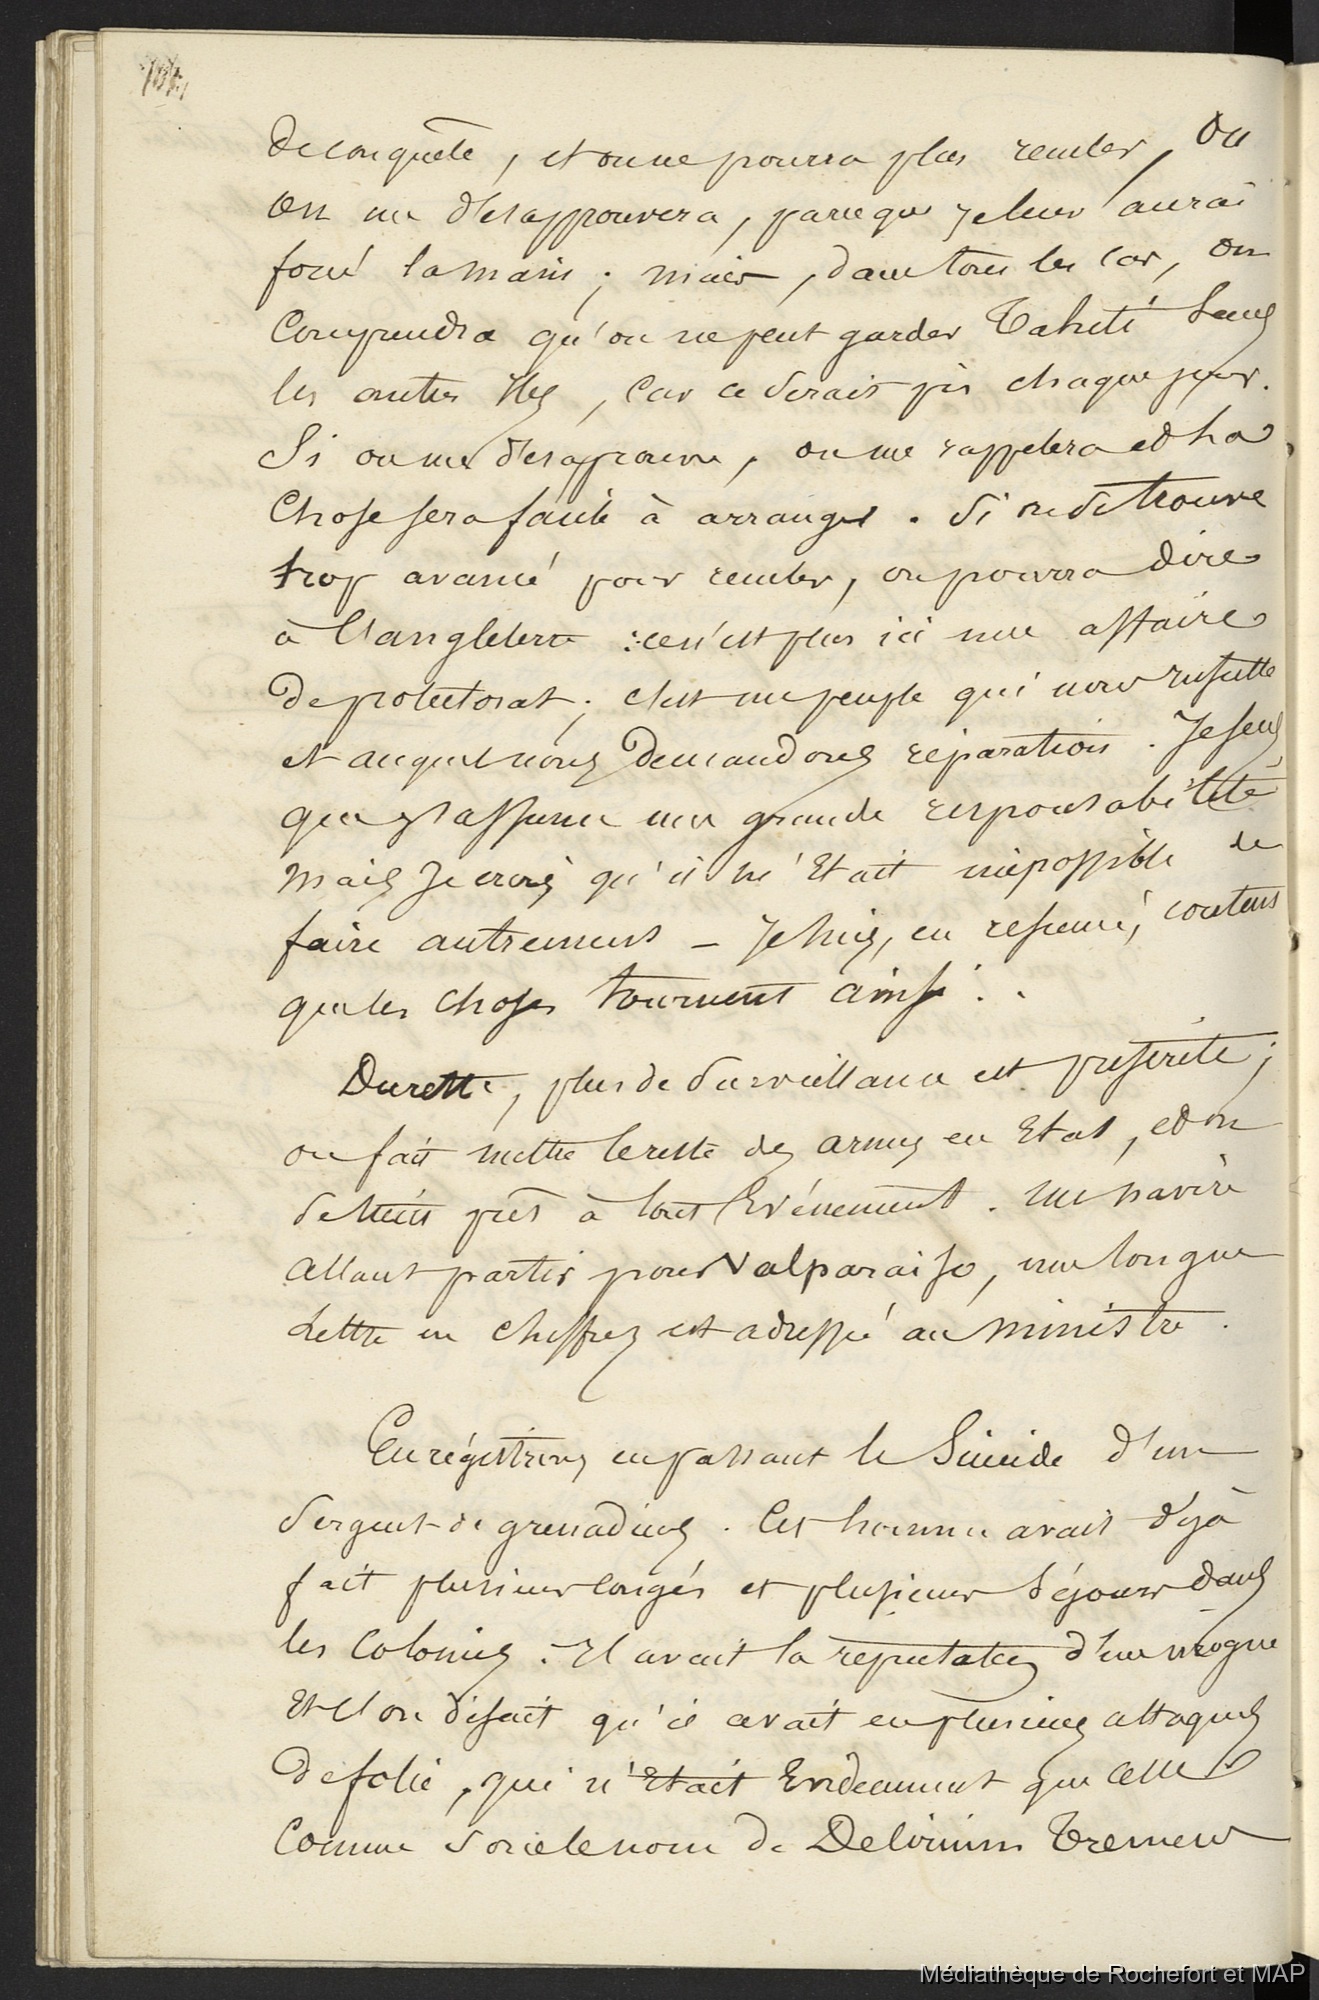 de conquête, et on ne pourra plus reculer, ou
on me désapprouvera, parce que je leur aurai
forcé la main ; mais, dans tous les cas, on
comprendra qu'on ne peut garder Tahiti sans
les autres Iles, car ce serait pis chaque jour.
Si on me désaprouve, on me rappelera et la
chose sera facile à arranger. Si on se trouve
trop avancé pour reculer, on pourra dire
à l'angleterre : ce n'est plus ici une affaire
de protectorat ; c'est un peuple qui nous insulte
et auquel nous demandons réparation. Je sens
que j'assume une grande responsabilité
mais je crois qu'il m'était impossible de
faire autrement - Je suis, en résumé, content
que les choses tournent ainsi..
Du reste, plus de surveillance est prescrite ;
on fait mettre le reste des armes en état, et on
se tient prêt à tout événement. Un navire
allant partir pour Valparaiso, une longue
lettre en chiffres est adressée au ministre.
Enrégistrons en passant le Suicide d'un
sergent de grenadiers. Cet homme avait déjà
fait plusieurs congés et plusieurs séjours dans
les colonies. Il avait la réputation d'un ivrogne
et l'on disait qu'il avait eu plusieurs attaques
de folie, qui n'était évidemment que celle
connue sous le nom de Delirium Tremens
Médiathèque de Rochefort et MAP